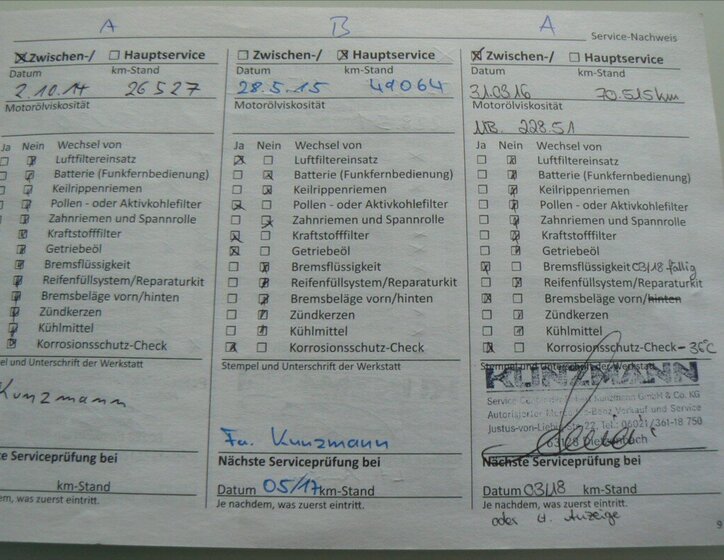 A
B
A
Service-Nachweis
Zwischen-/ Hauptservice
Datum km-Stand
2.10.14 26527
Motorölviskosität
Ja Nein Wechsel von
Luftfiltereinsatz
Batterie (Funkfernbedienung)
Keilrippenriemen
Pollen - oder Aktivkohlefilter
Zahnriemen und Spannrolle
Kraftstofffilter
Getriebeöl
Bremsflüssigkeit
Reifenfüllsystem/Reparaturkit
Bremsbeläge vorn/hinten
Zündkerzen
Kühlmittel
Korrosionsschutz-Check
pel und Unterschrift der Werkstatt
Kunzmann
ste Serviceprüfung bei
km-Stand
dem, was zuerst eintritt.
Zwischen-/ Hauptservice
Datum km-Stand
28.5.15 49064
Motorölviskosität
Ja Nein Wechsel von
Luftfiltereinsatz
Batterie (Funkfernbedienung)
Keilrippenriemen
Pollen - oder Aktivkohlefilter
Zahnriemen und Spannrolle
Kraftstofffilter
Getriebeöl
Bremsflüssigkeit
Reifenfüllsystem/Reparaturkit
Bremsbeläge vorn/hinten
Zündkerzen
Kühlmittel
Korrosionsschutz-Check
Stempel und Unterschrift der Werkstatt
Fa. Kunzmann
Nächste Serviceprüfung bei
Datum 05/17 km-Stand
Je nachdem, was zuerst eintritt.
Zwischen-/ Hauptservice
Datum km-Stand
31.03.16 70.515km
Motorölviskosität
MB. 228.51
Ja Nein Wechsel von
Luftfiltereinsatz
Batterie (Funkfernbedienung)
Keilrippenriemen
Pollen - oder Aktivkohlefilter
Zahnriemen und Spannrolle
Kraftstofffilter
Getriebeöl
Bremsflüssigkeit 03/18 fällig
Reifenfüllsystem/Reparaturkit
Bremsbeläge vorn/hinten
Zündkerzen
Kühlmittel
Korrosionsschutz-Check -36°C
Stempel und Unterschrift der Werkstatt
KUNZMANN
Service Kunzmann GmbH & Co. KG
Autorisierter Mercedes-Benz Verkauf und Service
Justus-von-Liebig-Str. 22, Tel.: 06021/361-18 750
63128 Dietzenbach
Nächste Serviceprüfung bei
Datum 03/18 km-Stand
Je nachdem, was zuerst eintritt.
oder n. Anzeige
9